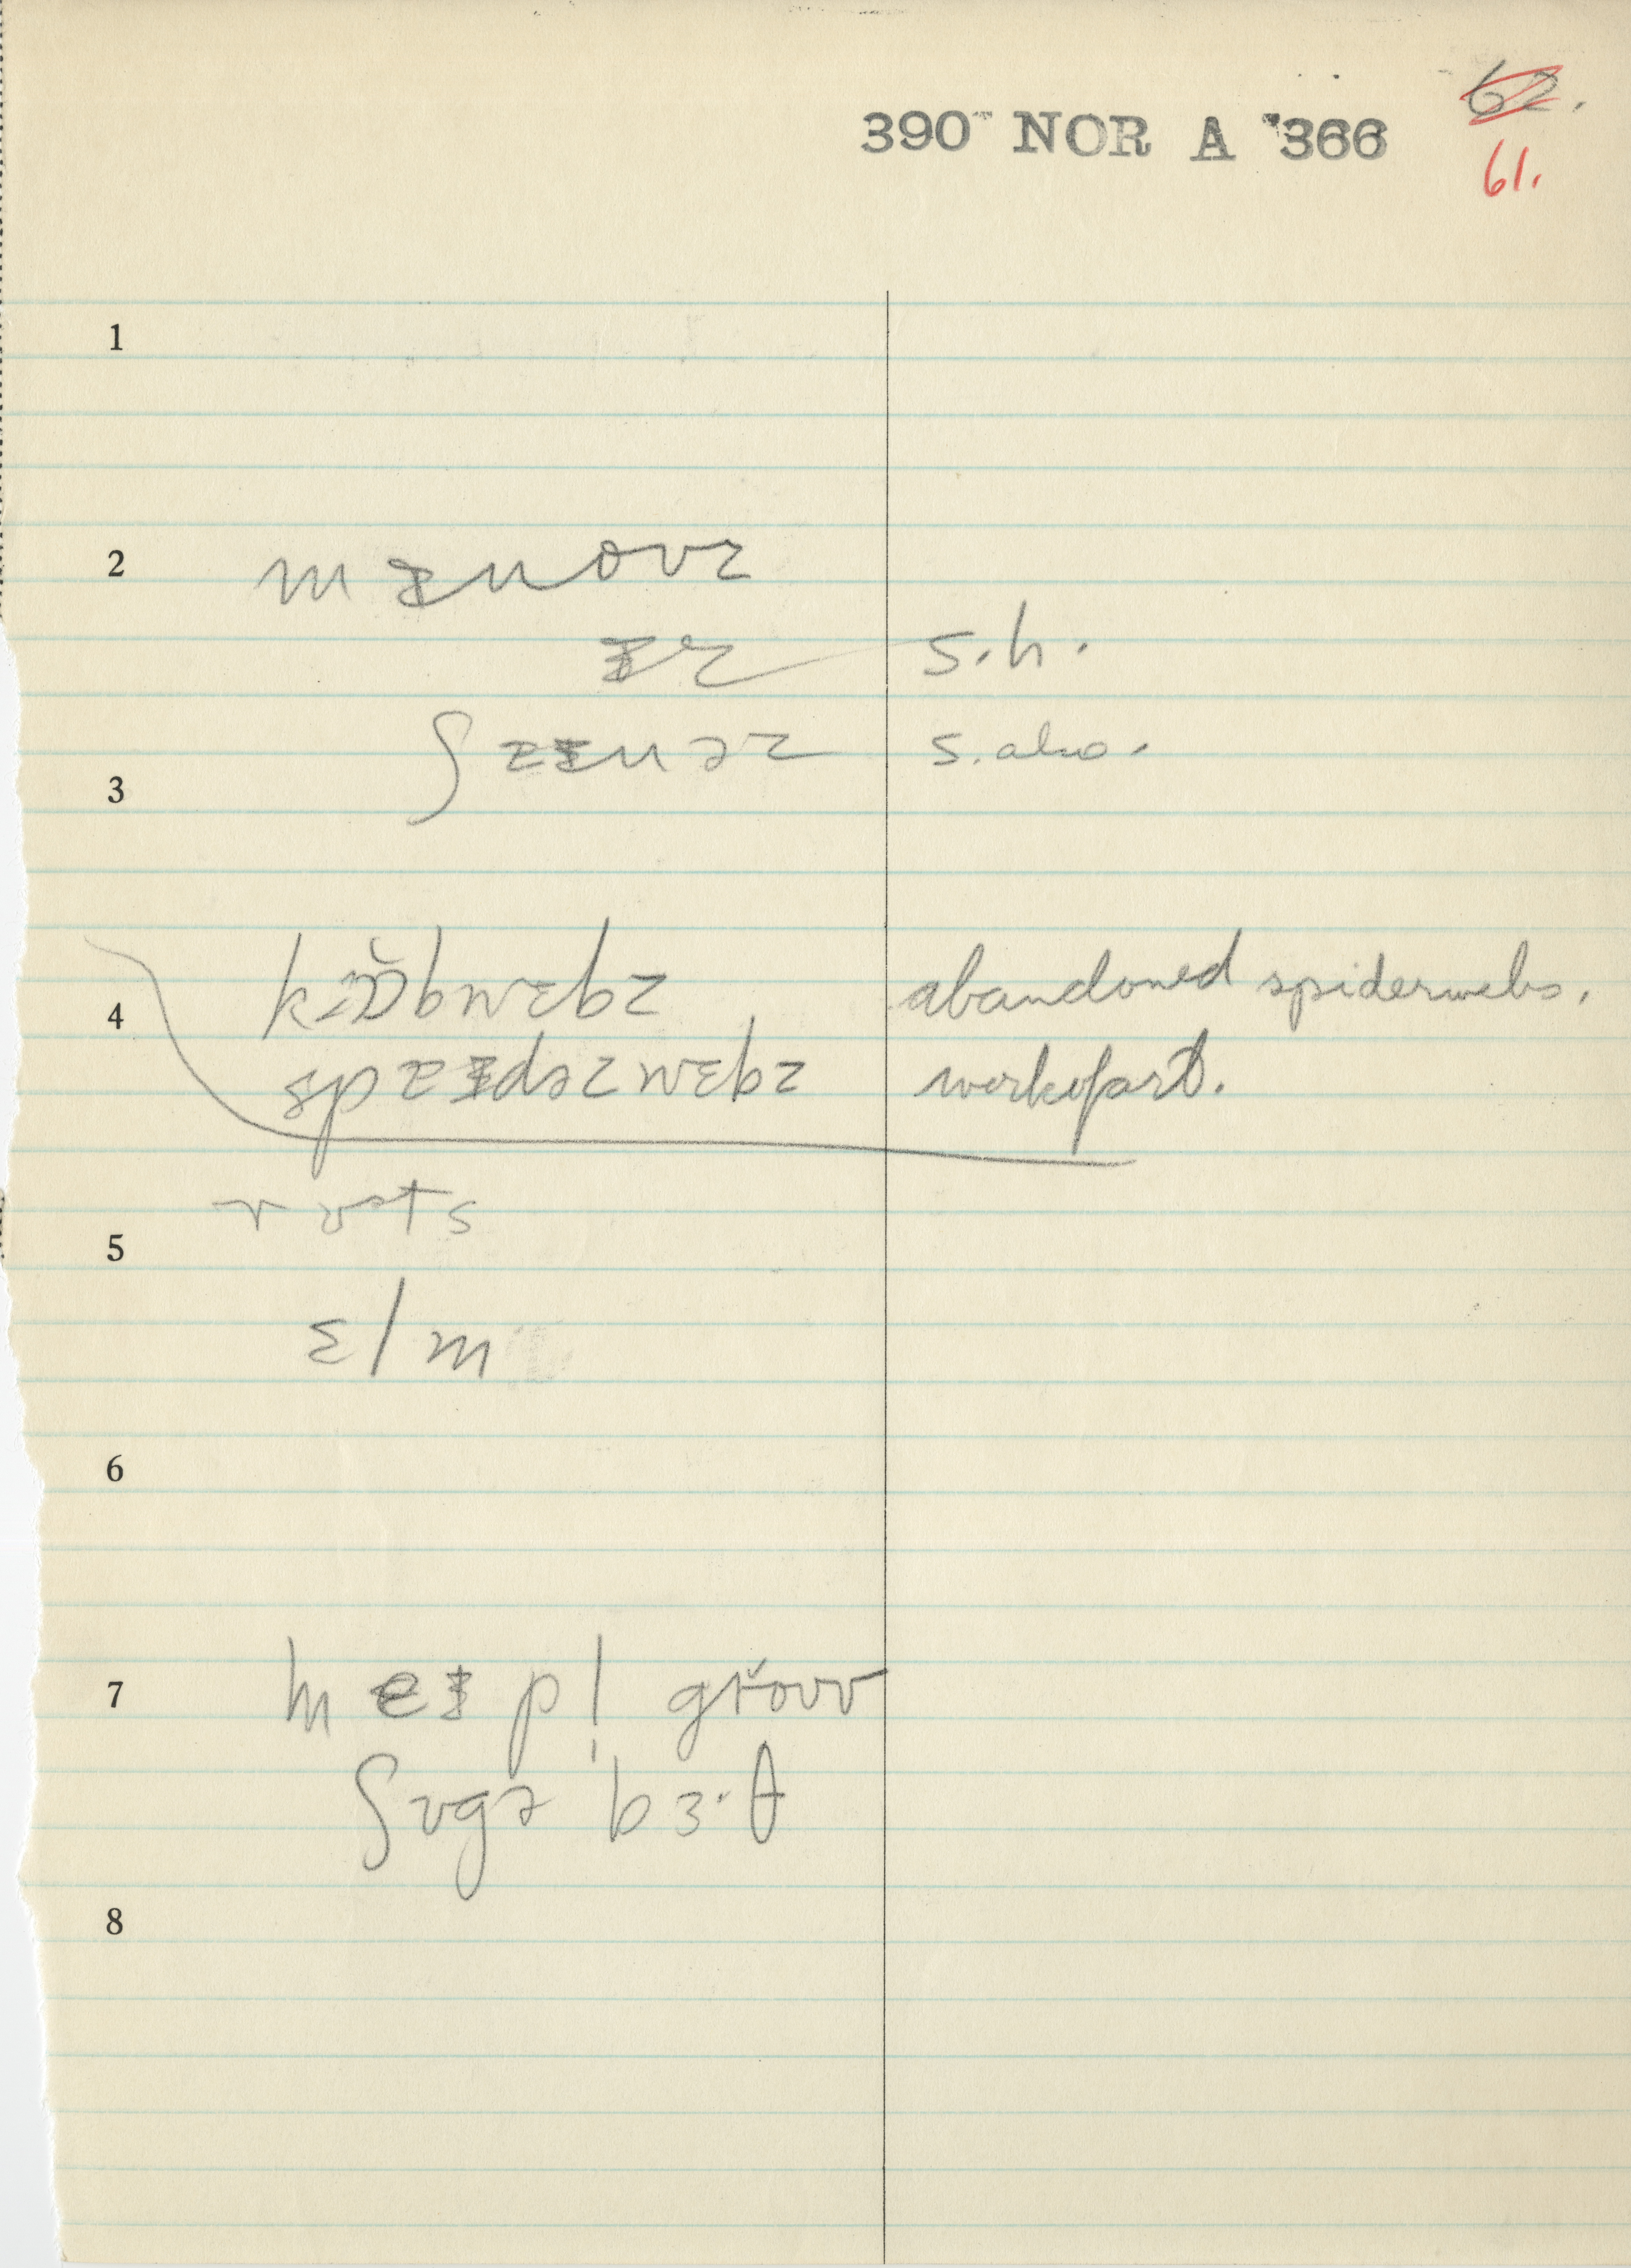 390 NOR A 366
62.
61.
1
2 mɪnoʊz
ɪz s.h.
ʃaɪnəz s. also.
3
kɒbwɛbz abandoned spiderwebs.
4
spaɪdəzwɛbz work of art.
rʊts
5
ɛlm
6
7 meɪpl̩ groʊv
ʃʊgə bɜ·θ
8